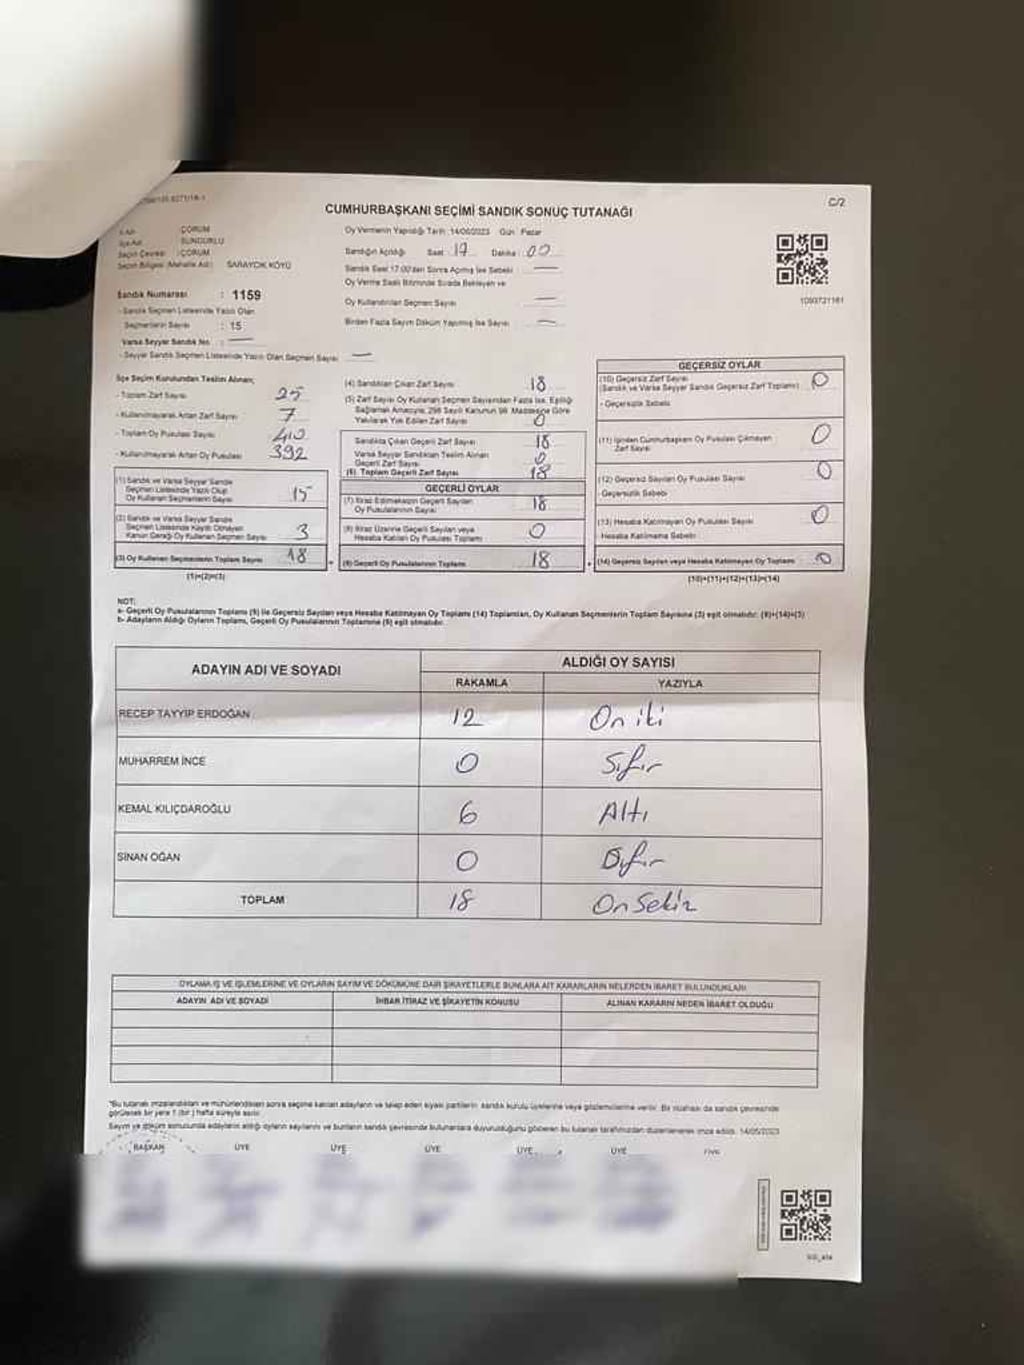 CUMHURBAŞKANI SEÇİMİ SANDIK SONUÇ TUTANAĞI
C/2
İl Adı : ÇORUM
İlçe Adı : SUNGURLU
Seçim Çevresi : ÇORUM
Seçim Bölgesi (Mahalle Adı) : SARAYCIK KÖYÜ
Sandık Numarası : 1159
- Sandık Seçmen Listesinde Yazılı Olan
Seçmenlerin Sayısı : 15
Varsa Seyyar Sandık No : —
- Seyyar Sandık Seçmen Listesinde Yazılı Olan Seçmen Sayısı —
Oy Vermenin Yapıldığı Tarih : 14/05/2023 Gün : Pazar
Sandığın Açıldığı Saat 17 Dakika : 00
Sandık Saat 17.00'dan Sonra Açılmış İse Sebebi —
Oy Verme Saati Bitiminde Sırada Bekleyen ve
Oy Kullandırılan Seçmen Sayısı —
Birden Fazla Sayım Döküm Yapılmış İse Sayısı —
1093721161
İlçe Seçim Kurulundan Teslim Alınan;
- Toplam Zarf Sayısı 25
- Kullanılmayarak Artan Zarf Sayısı 7
- Toplam Oy Pusulası Sayısı 410
- Kullanılmayarak Artan Oy Pusulası 392
(1) Sandık ve Varsa Seyyar Sandık
Seçmen Listesinde Yazılı Olup
Oy Kullanan Seçmenlerin Sayısı 15
(2) Sandık ve Varsa Seyyar Sandık
Seçmen Listesinde Kayıtlı Olmayan
Kanun Gereği Oy Kullanan Seçmen Sayısı 3
(3) Oy Kullanan Seçmenlerin Toplam Sayısı 18
(1)+(2)=(3)
(4) Sandıktan Çıkan Zarf Sayısı 18
(5) Zarf Sayısı Oy Kullanan Seçmen Sayısından Fazla İse, Eşitliği
Sağlamak Amacıyla, 298 Sayılı Kanunun 98. Maddesine Göre
Yakılarak Yok Edilen Zarf Sayısı 0
Sandıkta Çıkan Geçerli Zarf Sayısı 18
Varsa Seyyar Sandıktan Teslim Alınan
Geçerli Zarf Sayısı 0
(6) Toplam Geçerli Zarf Sayısı 18
GEÇERLİ OYLAR
(7) İtiraz Edilmeksizin Geçerli Sayılan
Oy Pusulalarının Sayısı 18
(8) İtiraz Üzerine Geçerli Sayılan veya
Hesaba Katılan Oy Pusulası Toplamı 0
(9) Geçerli Oy Pusulalarının Toplamı 18
GEÇERSİZ OYLAR
(10) Geçersiz Zarf Sayısı
(Sandık ve Varsa Seyyar Sandık Geçersiz Zarf Toplamı) 0
- Geçersizlik Sebebi
(11) İçinden Cumhurbaşkanı Oy Pusulası Çıkmayan
Zarf Sayısı 0
(12) Geçersiz Sayılan Oy Pusulası Sayısı 0
- Geçersizlik Sebebi
(13) Hesaba Katılmayan Oy Pusula Sayısı 0
Hesaba Katılmama Sebebi
(14) Geçersiz Sayılan veya Hesaba Katılmayan Oy Toplamı 0
(10)+(11)+(12)+(13)=(14)
NOT:
a- Geçerli Oy Pusulalarının Toplamı (9) ile Geçersiz Sayılan veya Hesaba Katılmayan Oy Toplamı (14) Toplamları, Oy Kullanan Seçmenlerin Toplam Sayısına (3) eşit olmalıdır: (9)+(14)=(3)
b- Adayların Aldığı Oyların Toplamı, Geçerli Oy Pusulalarının Toplamına (9) eşit olmalıdır.
ADAYIN ADI VE SOYADI
ALDIĞI OY SAYISI
RAKAMLA YAZIYLA
RECEP TAYYİP ERDOĞAN 12 On iki
MUHARREM İNCE 0 Sıfır
KEMAL KILIÇDAROĞLU 6 Altı
SİNAN OĞAN 0 Sıfır
TOPLAM 18 On Sekiz
OYLAMA İŞ VE İŞLEMLERİNE VE OYLARIN SAYIM VE DÖKÜMÜNE DAİR ŞİKAYETLERLE BUNLARA AİT KARARLARIN NELERDEN İBARET BULUNDUKLARI
ADAYIN ADI VE SOYADI İHBAR İTİRAZ VE ŞİKAYETİN KONUSU ALINAN KARARIN NEDEN İBARET OLDUĞU
*Bu tutanak imzalandıktan ve mühürlendikten sonra seçime katılan adayların ve talep eden siyasi partilerin sandık kurulu üyelerine veya gözlemcilerine verilir. Bir nüshası da sandık çevresinde
görülecek bir yere 1 (bir) hafta süreyle asılır.
Sayım ve döküm sonucunda adayların aldığı oyların sayılarını ve bunların sandık çevresinde bulunanlara duyurulduğunu gösteren bu tutanak tarafımızdan düzenlenerek imza edildi. 14/05/2023
BAŞKAN ÜYE ÜYE ÜYE ÜYE ÜYE